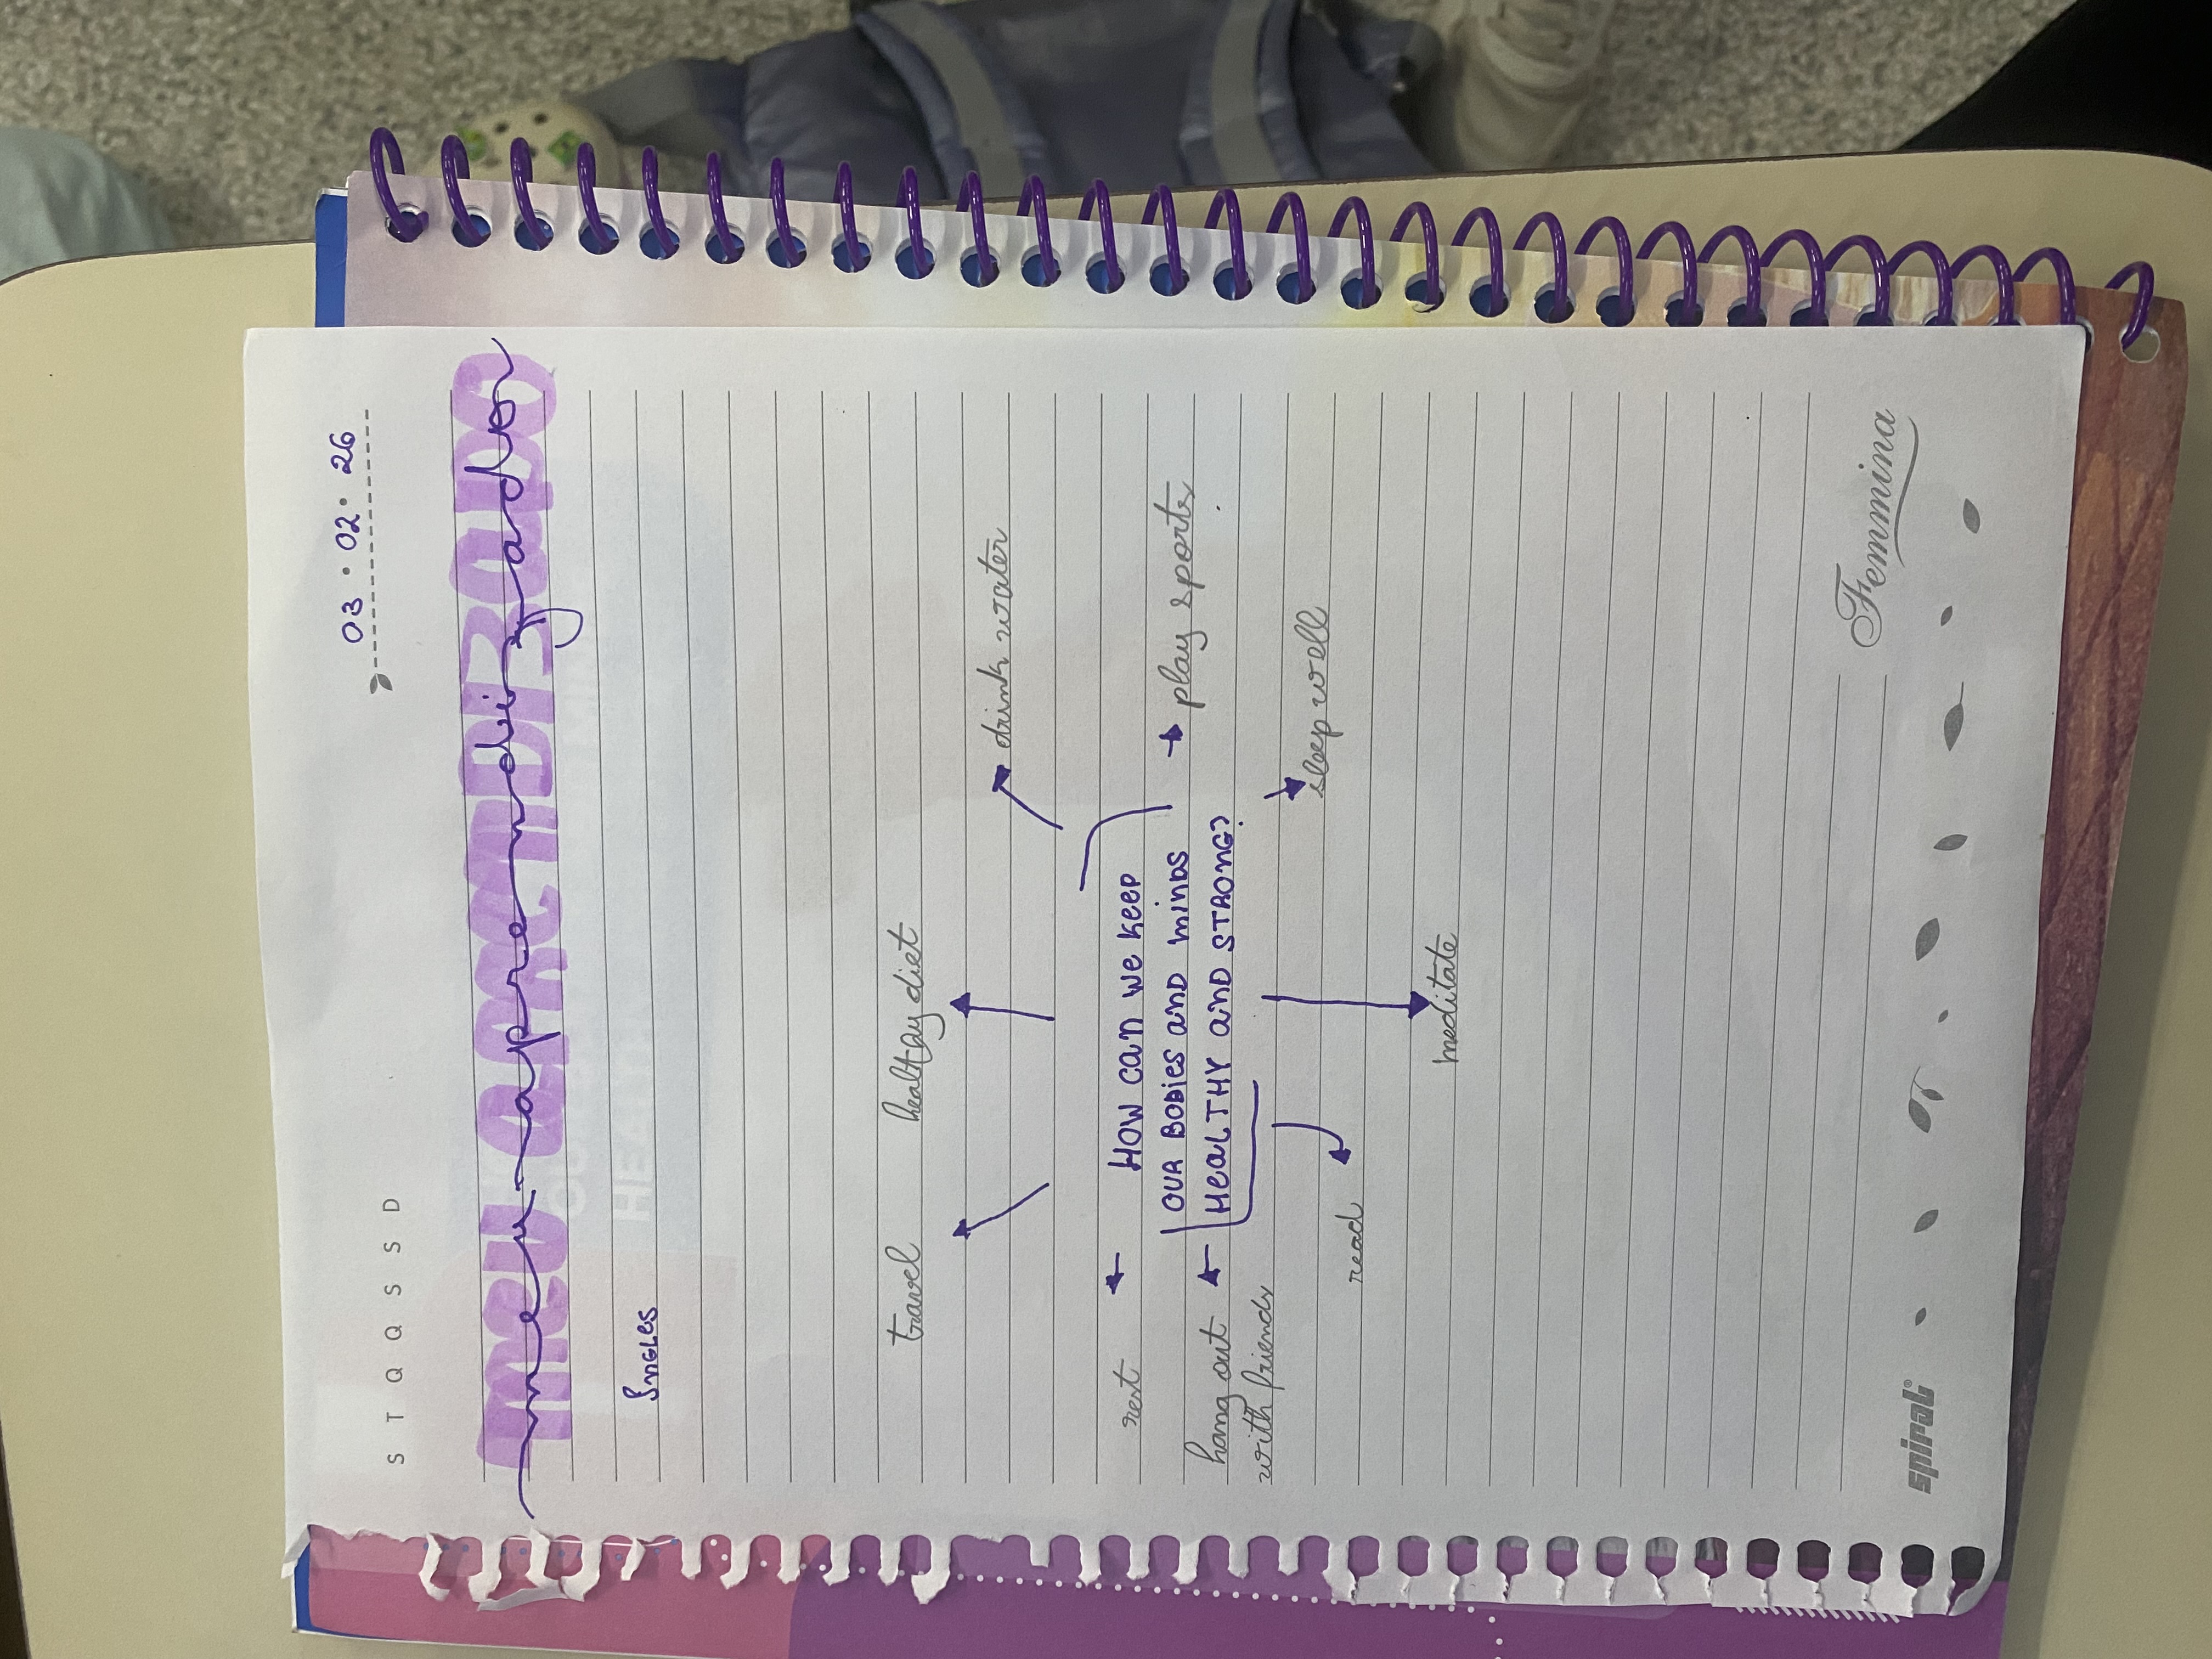 03 · 02 · 26
S T Q Q S S D
meu aprendizado
meu aprendizado
Inglês
travel
healthy diet
drink water
rest
HOW CAN WE KEEP
OUR BODIES AND MINDS
HEALTHY AND STRONG?
play sports
hang out
with friends
sleep well
read
meditate
spiral®
Femmina